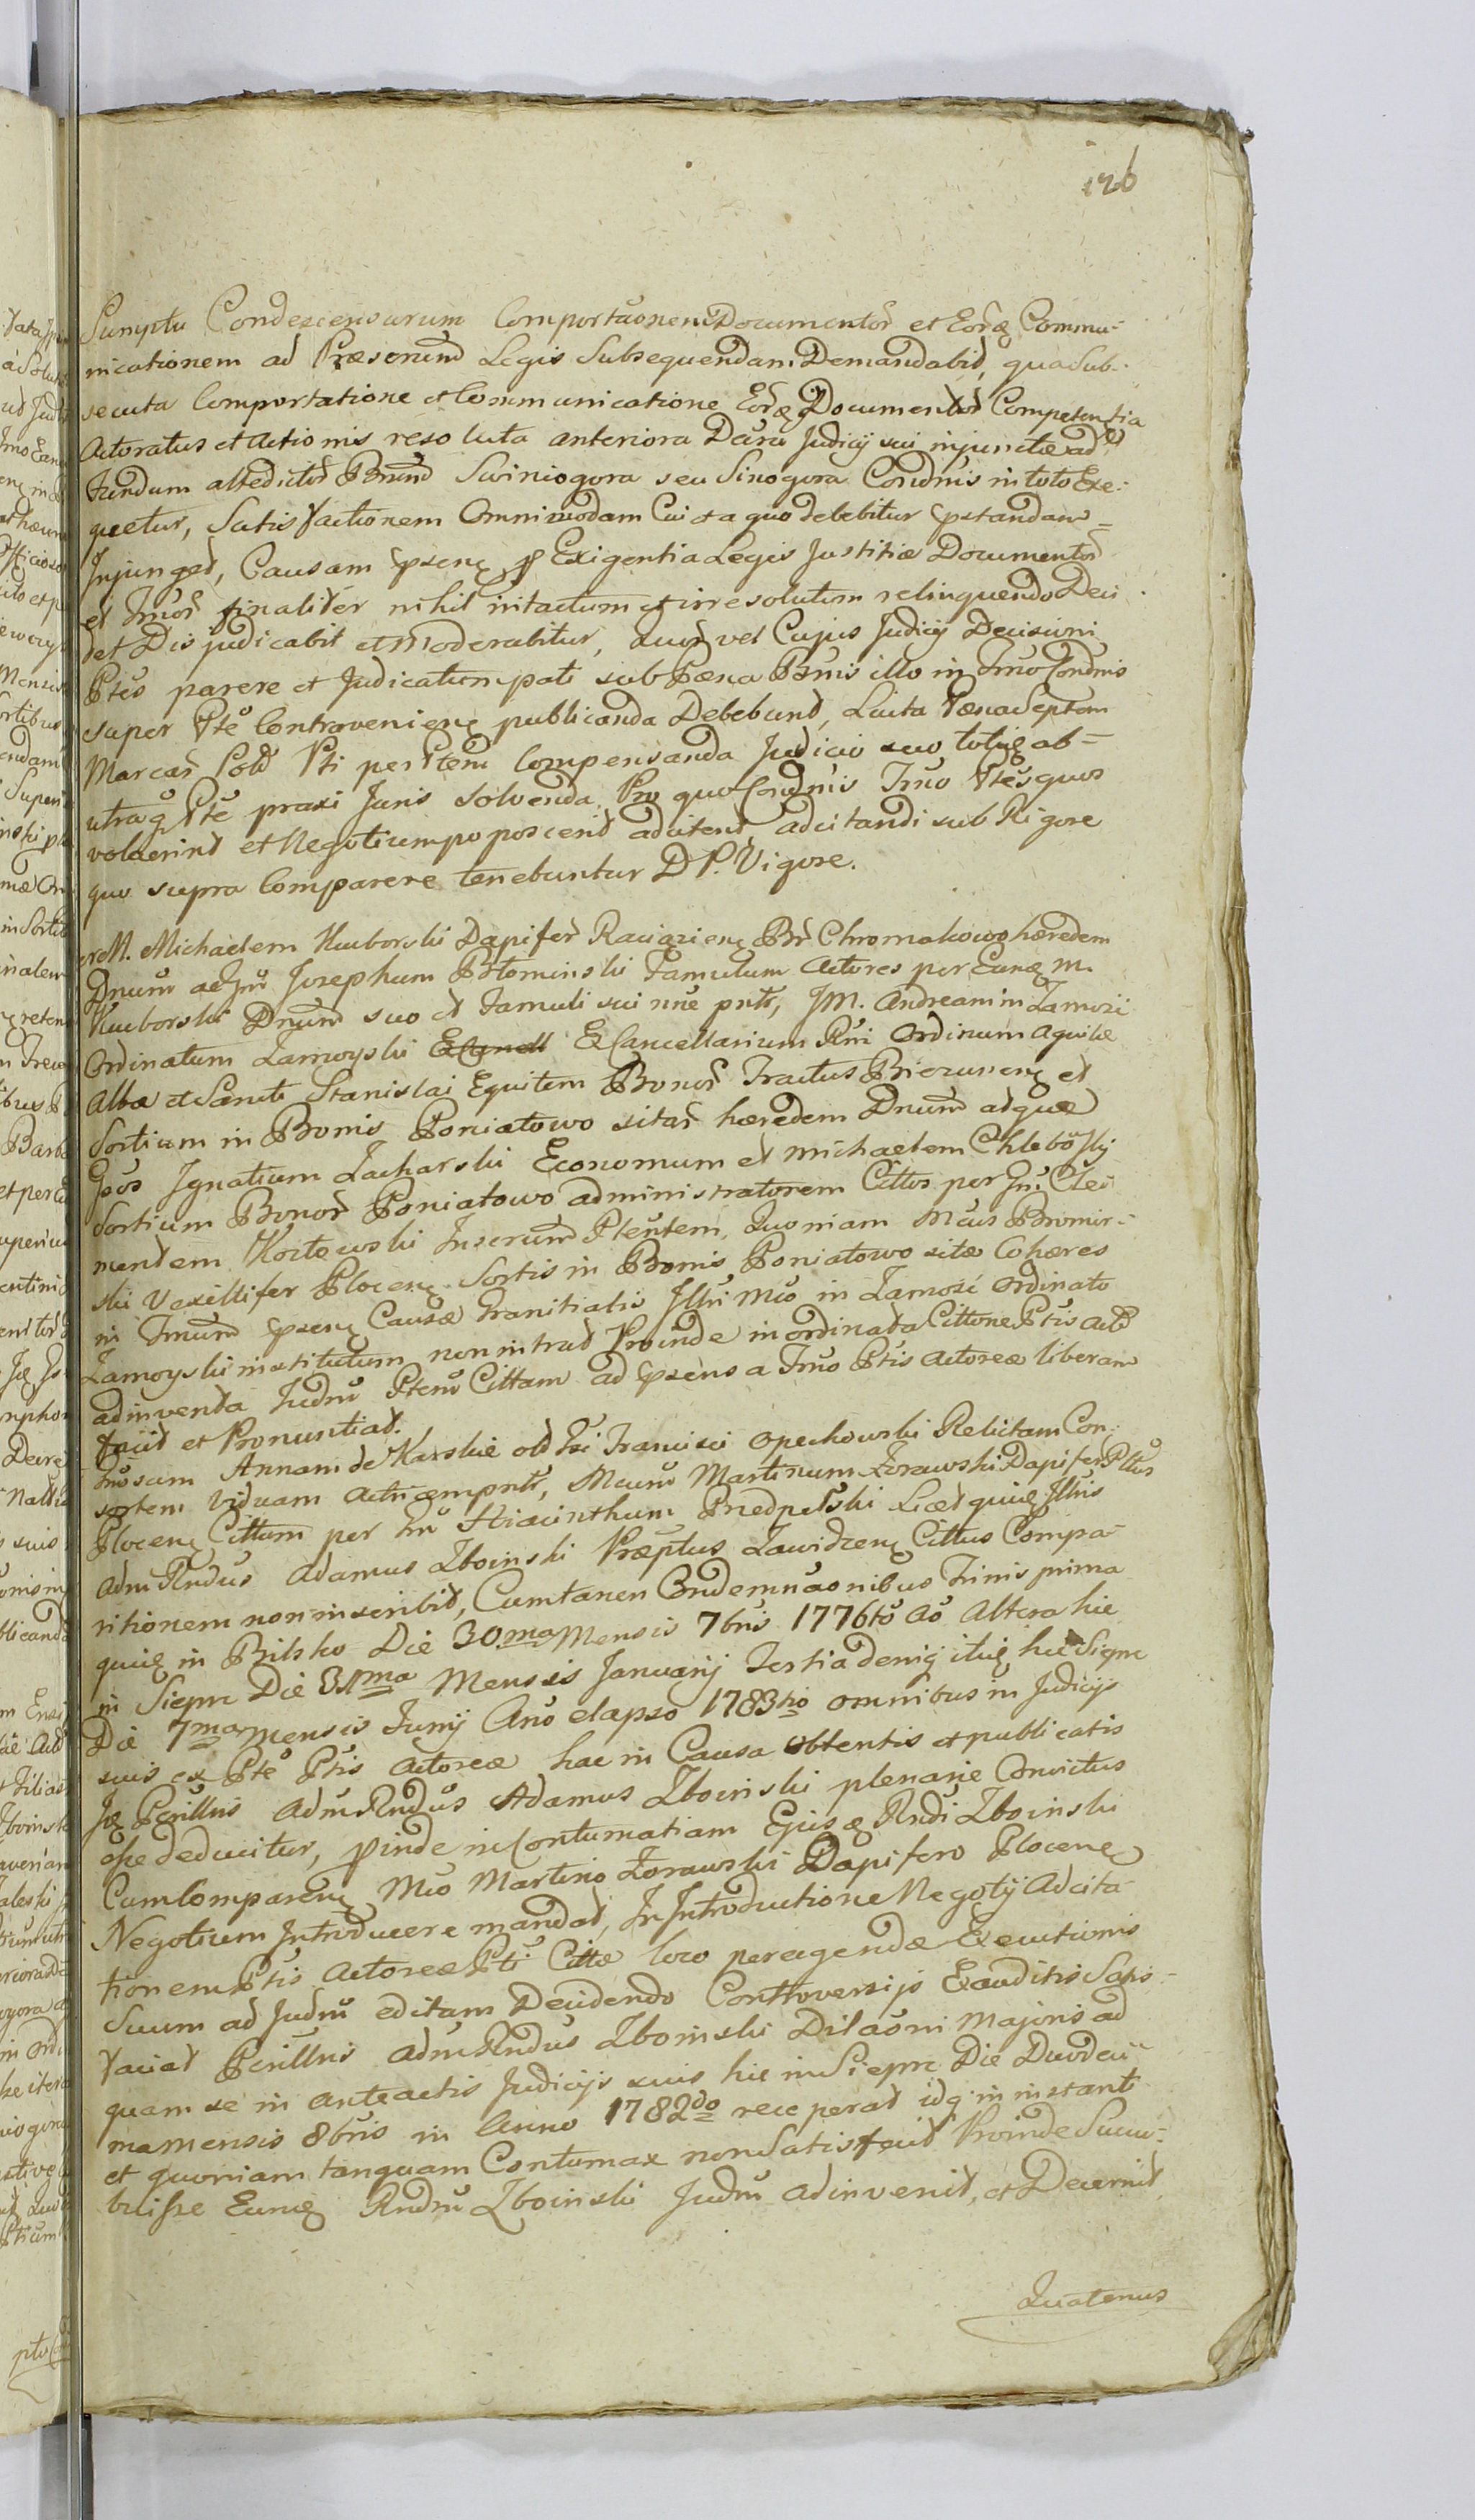 126
Sumptu Condescensurum Comportaõnem Documentor̃ et Eorq̃ Commu-
nicationem ad Præscrium̃ Legis Subsequendam Demandabit, qua Sub-
secuta Comportatione et Communicatione Eorq̃ Documentor̃ Competentia
Actoratus et Actionis resoluta anteriora Decta Judicij sui injunctæ ad
Fundum attedictor̃ Bnum̃ Swiniogora seu Sinogora Condnis in toto Exe-
quetur, Satisfactionem Omnimodam Cui et a quo debebitur pstandam
Injunget, Causam psenq̃ p Exigentia Legis Justitiæ Documentor̃
et Jmor̃ finaliter nihil intactum et irresolutum relinquendo Deci
det Disjudicabit et Moderabitur, cujus vel Cujus Judicij Decisioni
Ptes parere et Judicatum pati sub Pæna Bnis illo in Tmno Condnis
super Pte Contraveniene publicanda Debebunt, Lucta Pæna Septem
Marcar̃ Pol Pti per Ptem̃ Compensanda Judicio suo totiq̃ ab
utraq̃ Pte praxi Juris solvenda. Pro quo Condnis Tmno Ptes quos
voluerint et Negotium poposcerit adcitent, adcitandi sub Rigore
quo supra Comparere tenebuntur D P. Vigore.
M. Michaelem Kuborski Dapifer̃ Raciązienq̃ Br̃ Chromakowo hæredem
Dnum̃ ac Jñ Josephum Płomiński Famulum Actores per Eunq̃ M.
Kuborski Dnum̃ suo et Famuli sui nñe pntr̃, JM. Andream in Zamość
Ordinatum Zamoyski ExCancellarium Rni Ordinum Aquilæ
Albæ et Sancti Stanislai Equitem Bonor̃ Tractus Biezunenq̃ et
Sortium in Bonis Poniatowo sitar̃ hæredem Dnum̃ adque
Gsos Ignatium Zacharski Economum et Michaelem Chlebowski
Sortium Bonor̃ Poniatowo administratorem Cittos per Jn̄ Cle
mentem Kozłowski Inserum̃ Ptentem, Quoniam Mcus Bromir-
ski Vexillifer Plocenq̃ Sortis in Bonis Poniatowo sitæ Cohæres
in Tmnum̃ psenq̃ Causæ Granitialis Illri Mco in Zamość Ordinato
Zamoyski institutum non intrat Proinde inordinata Cittone Ptis Actæ
adinventa Judm̃ Ptem̃ Cittam ad psens a Tmno Ptis Actoreæ liberam
facit et Pronuntiat.
Gñosam Annam de Karskie olt Gsi Francisci Opechowski Relictam Con-
sortem Viduam Actricem pntr̃, Mcum̃ Martinum Zorawski Dapifer Ptus
Plocenq̃ Cittum per Gñ Hiacinthum Predpełski Licet quiq̃ Illris
Adm Rndus Adamus Zboinski Præptus Zawidzenq̃ Cittus Compa-
ritionem non inscribit, Cum tamen Condemnaonibus Trinis prima
quiq̃ in Bilsko Die 30.ma Mensis 7bris 1776to Ao Altera hic
in Siepre Die 31ma Mensis Januarij Tertia deniq̃ itiq̃ hic Siepre
Die 7ma Mensis Junij Ano elapso 1783tio omnibus in Judicijs
suis ex Pte Ptis Actoreæ hac in Causa obtentis et publicatis
Jq̃ Perillris Adm Rndus Adamus Zboinski plenarie Convictus
esse deducitur, pinde in Contumatiam Ejusq̃ Rndi Zboinski
Cum Comparenq̃ Mco Martino Zorawski Dapifero Plocenq̃
Negotium Introducere mandat, In Introductione Negotij Adcita-
tionem Ptis Actoreæ Pti Cittæ loco peragendæ Executionis
Suum ad Judm̃ editam Decidendo Controversijs Exauditis Satis-
faciat Perillris Adm Rndus Zboinski Dilaoni Majoris ad
quam se in anteactis Judicijs suis hic in Siepre Die Duodeci-
ma mensis 8bris in Anno 1782do receperat idq̃ in instanti
et quoniam tanquam Contumax non Satisfecit Proinde Sucu-
buisse Eunq̃ Rndm̃ Zboinski Judm̃ adinvenit, et Decernit
Quatenus